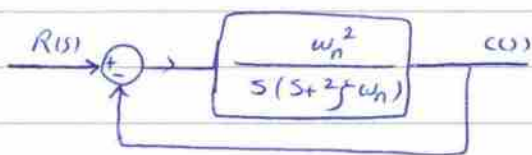 R(s)
+
-
ωn²
S(S+2ζωn)
C(s)